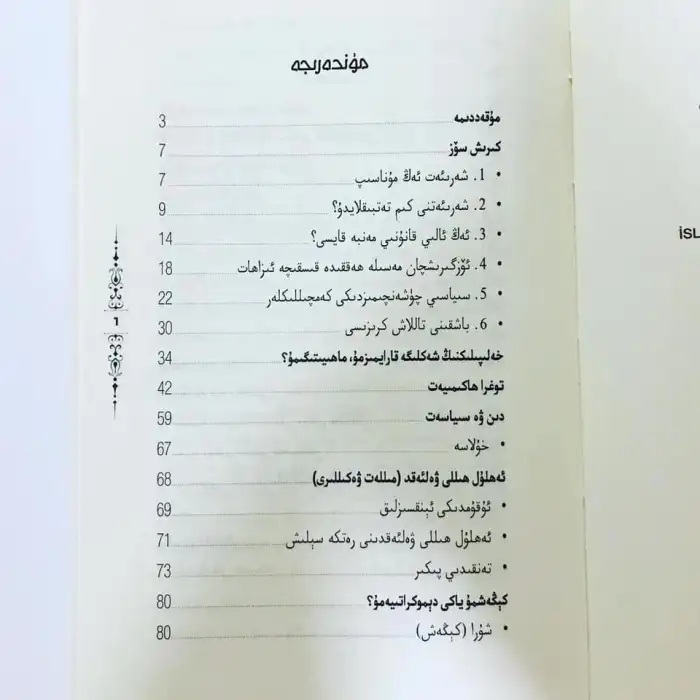 مۇندەرىجە
مۇقەددىمە 3
كىرىش سۆز 7
• 1. شەرىئەت ئەڭ مۇناسىپ 7
• 2. شەرىئەتنى كىم تەتبىقلايدۇ؟ 9
• 3. ئەڭ ئالىي قانۇنىي مەنبە قايسى؟ 14
• 4. ئۆزگىرىشچان مەسىلە ھەققىدە قىسقىچە ئىزاھات 18
• 5. سىياسىي چۈشەنچىمىزدىكى كەمچىللىكلەر 22
• 6. باشقىنى تاللاش كرىزىسى 30
خەلىپىلىكنىڭ شەكلىگە قارايمىزمۇ، ماھىيىتىگىمۇ؟ 34
توغرا ھاكىمىيەت 42
دىن ۋە سىياسەت 59
• خۇلاسە 67
ئەھلۇل ھىللى ۋەلئەقد (مىللەت ۋەكىللىرى) 68
• ئۇقۇمدىكى ئېنىقسىزلىق 69
• ئەھلۇل ھىللى ۋەلئەقدىنى رەتكە سېلىش 71
• تەنقىدىي پىكىر 73
كېڭەشمۇ ياكى دېموكراتىيەمۇ؟ 80
• شۇرا (كېڭەش) 80
1
İSL